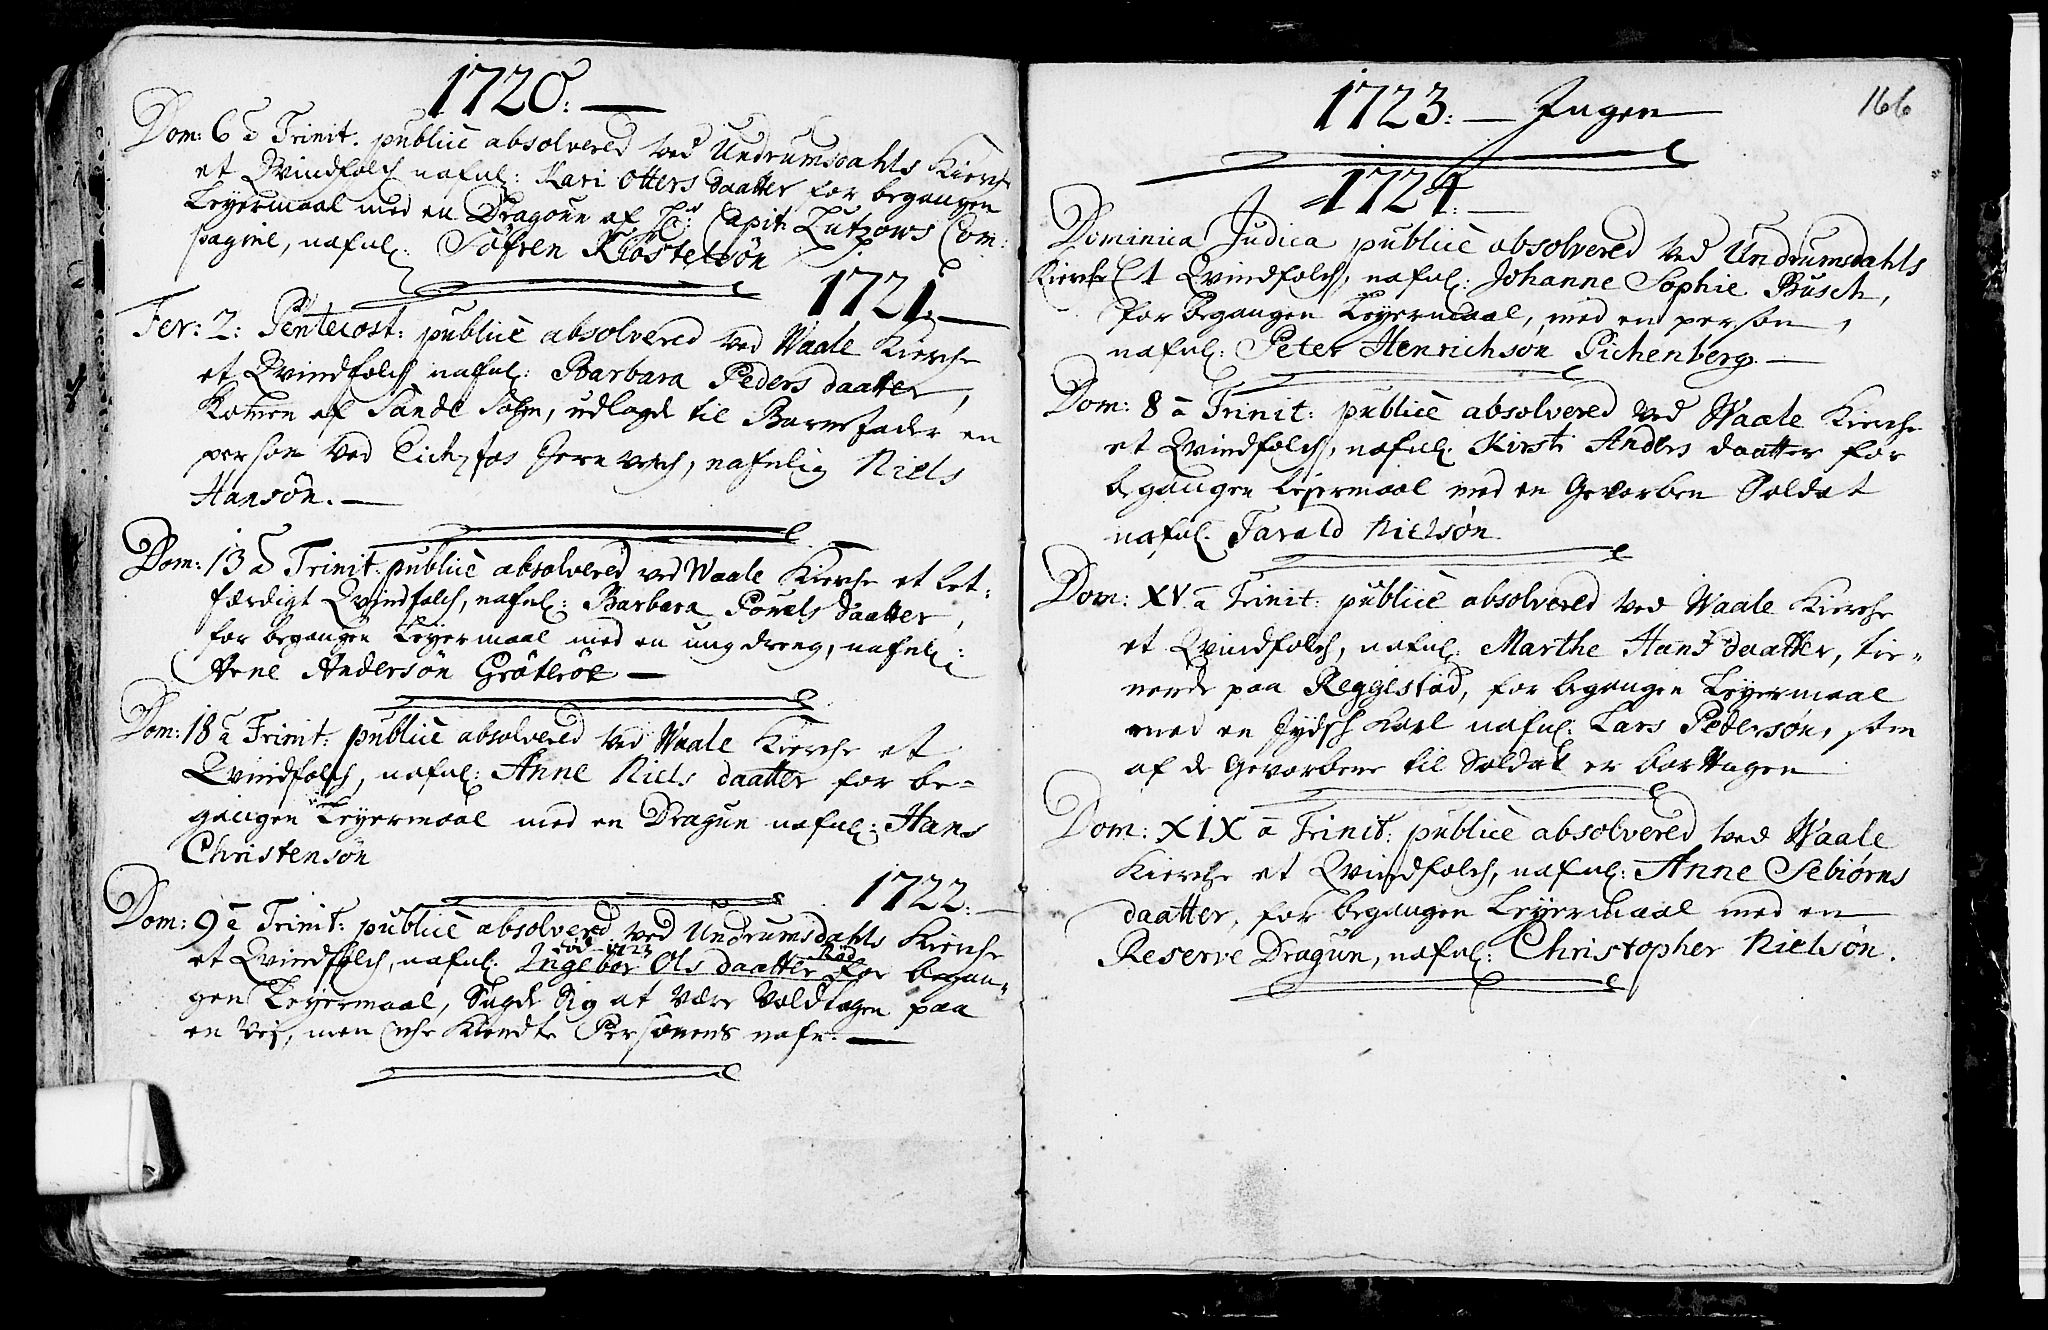 1720. —
Dom: 6 à Trinit. publicè absolvered ved Undrumsdahls Kierche
et Qvindfolch nafnl: Kari Otters daatter for begangen
Leyermaal med en Dragoun af Capit: Lutzows Com:
pagnie, nafnl: Söfren
1721. —
Fer: 2: Pentecost: publicè absolvered ved Waale Kierche
et Qvindfolch nafnl: Barbara Peders daatter,
Kommen af Sande Sogn, udlagde til Barnefader en
person ved Eichefos Jernverch, nafnlig Niels
Hansøn. —
Dom: 13 à Trinit. publicè absolvered ved Waale Kierche et let-
færdigt Qvindfolch, nafnl: Barbara Povels daatter,
for begangen Leyermaal med en ung dreng, nafnl:
Arne Andersøn Gröteröe —
Dom: 18 à Trinit: publicè absolvered ved Waale Kierche et
Qvindfolch, nafnl: Anne Niels daatter for be-
gangen Leyermaal med en Dragun nafnl: Hans
Christensøn
1722. —
Dom: 9 à Trinit: publicè absolvered ved Undrumsdahls Kierche
et Qvindfolch, nafnl: Ingebor Ols daatter for began-
gen Leyermaal, Sagde Sig at være Voldtagen paa
en Vej, men iche Kiendte Personens nafn. —
166
1723. — Ingen
1724. —
Dominica Judica publicè absolvered ved Undrumsdahls
Kierche 1 Qvindfolch, nafnl: Johanne Sophie Busch,
for begangen Leyermaal, med en person,
nafnl: Peter Henrichsøn Pichenberg. —
Dom: 8 à Trinit: publicè absolvered ved Waale Kierche
et Qvindfolch, nafnl. Kirsti Anders daatter for
begangen Lejermaal med en Gevorben Soldat
nafnl. Tarald Nielsøn.
Dom: XV à Trinit: publicè absolvered ved Waale Kierche
et Qvindfolch, nafnl: Marthe Hans daatter, tie-
nende paa Reggestad, for begangen Leyermaal
med en Jydsk Karl nafnl: Lars Pedersøn, som
af de Gevorbene til Soldat er borttagen
Dom: XIX à Trinit: publicè absolvered ved Waale
Kierche et Qvindfolch, nafnl: Anne Sebiørns
daatter, for begangen Leyermaal med en
Reserve Dragun, nafnl: Christopher Nielsøn.